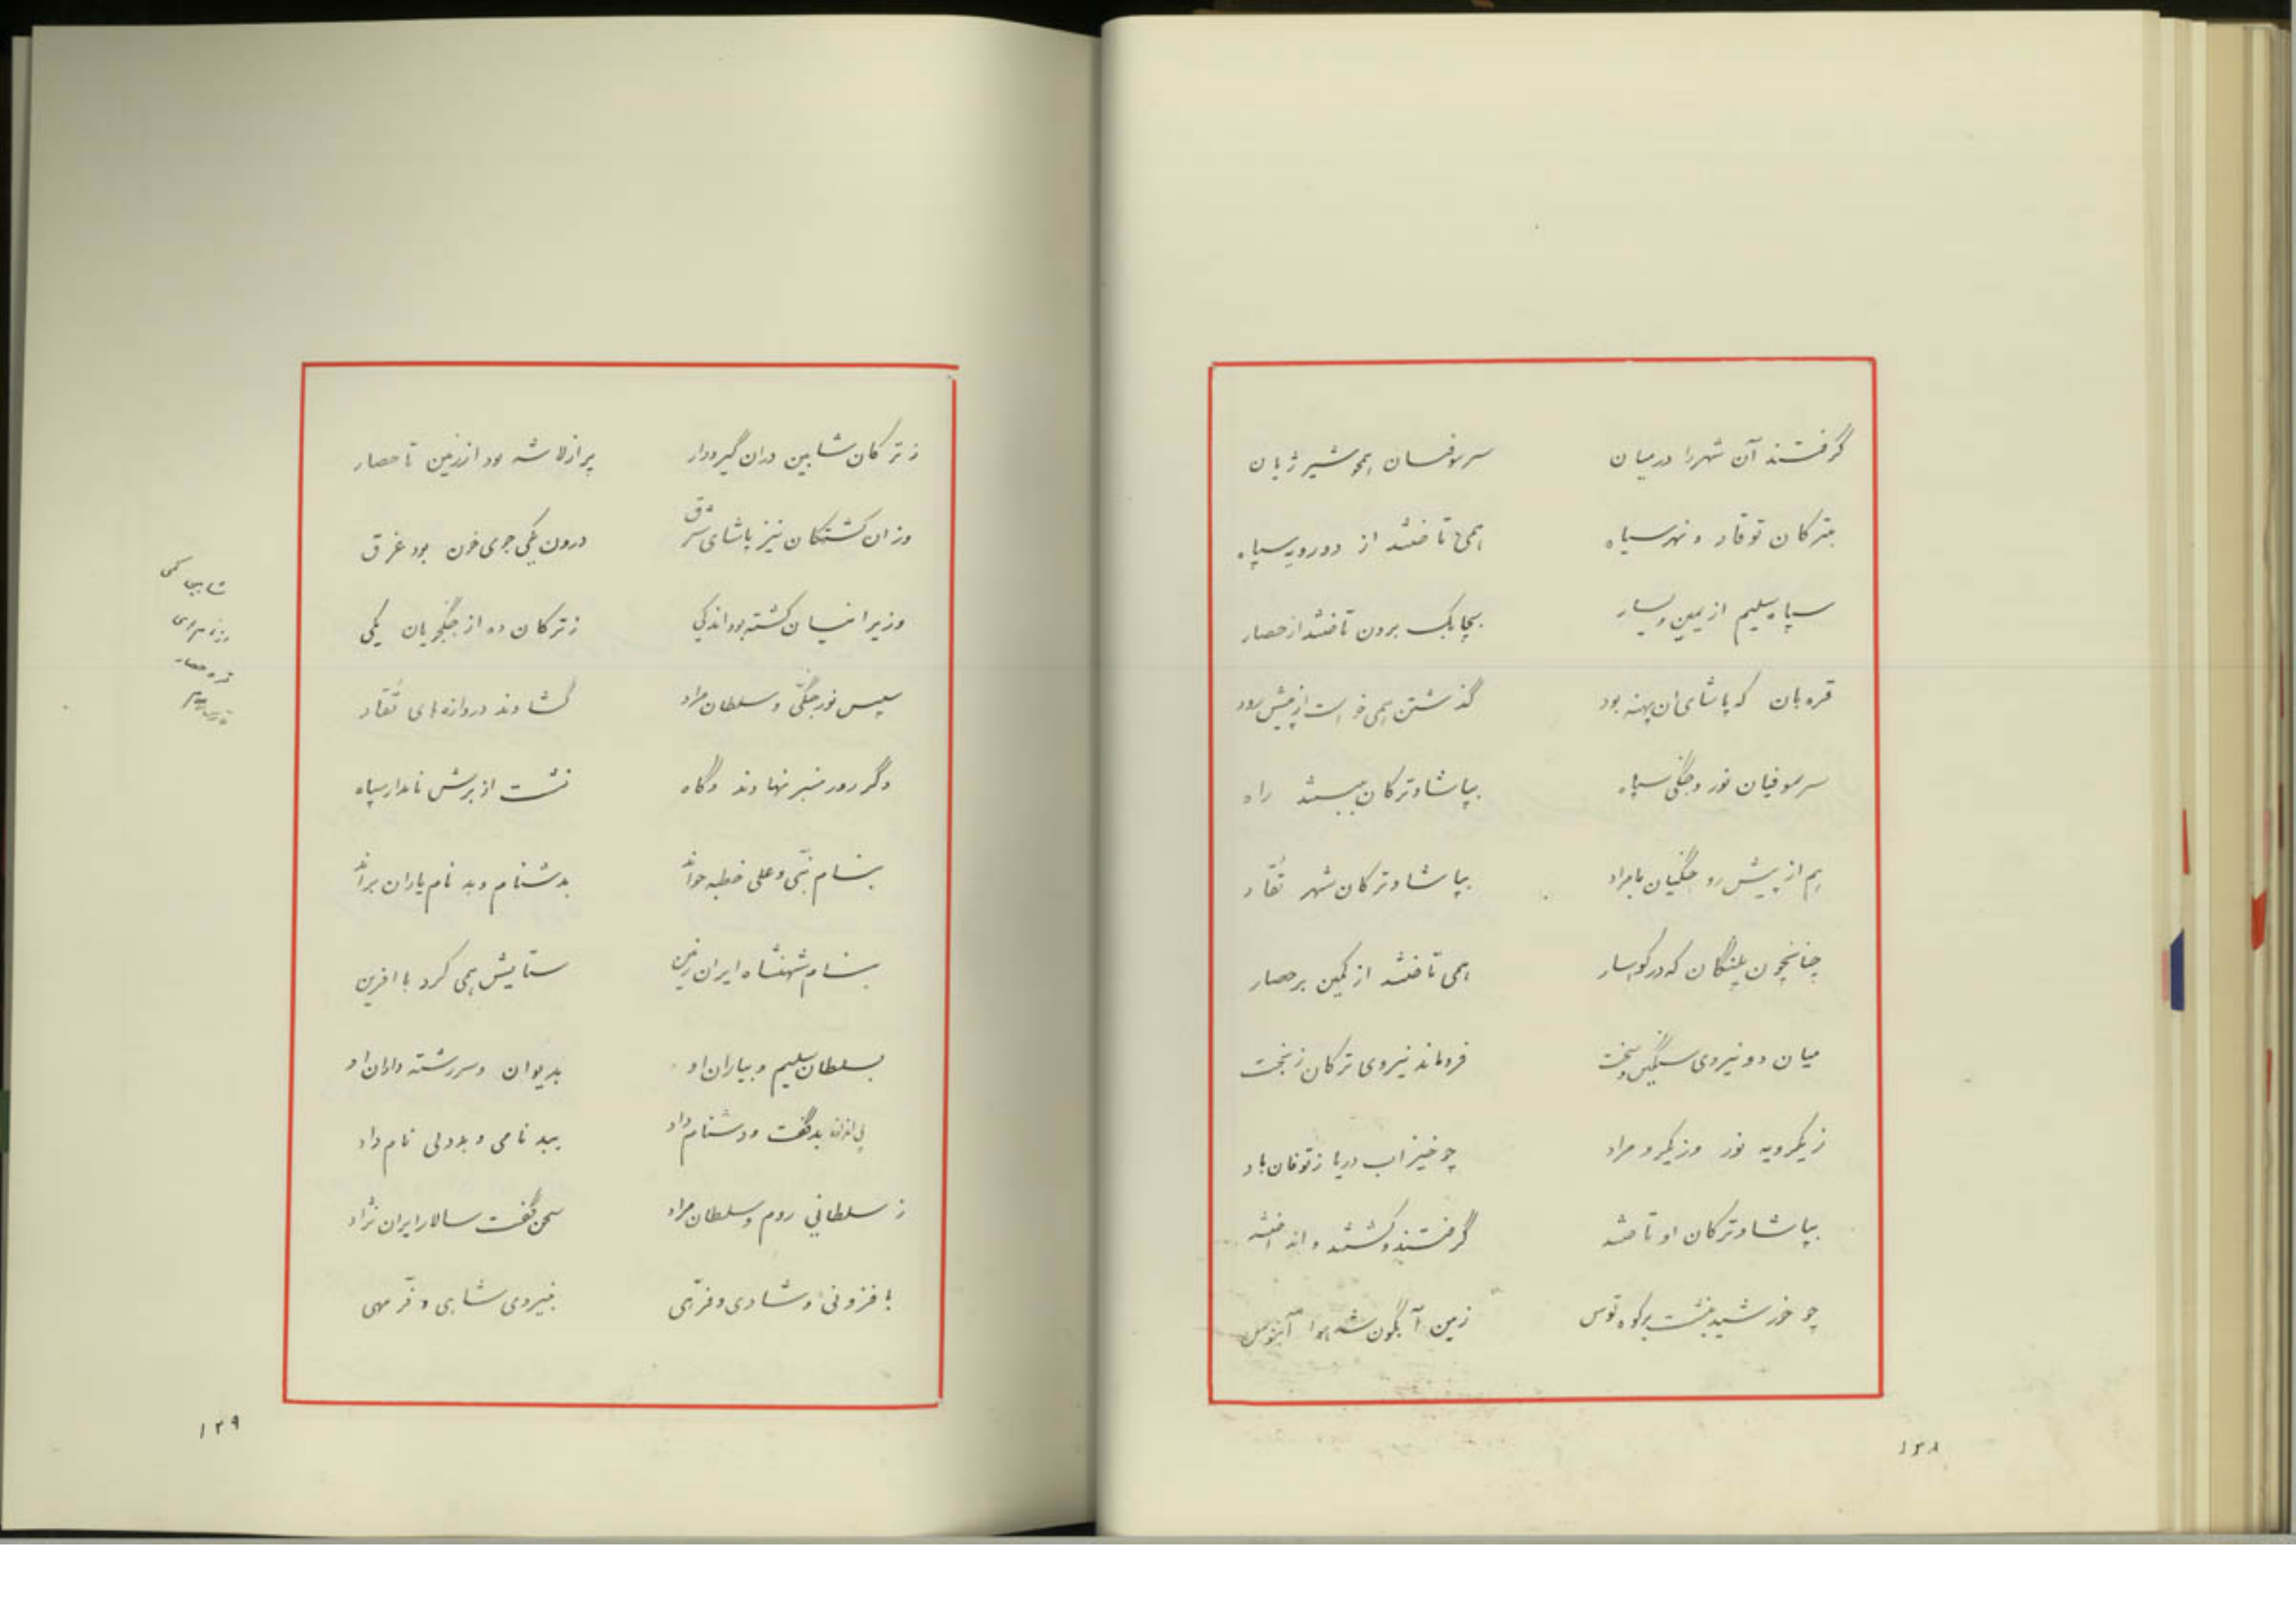 گرفتند آن شهر را در میان سر سوفیان همچو شیر ژیان
بترکان توقاد و نهر سیاه همی تاختند از دو رویه سپاه
سپاه سلیم از یمین و یسار بچابک برون تاختند از حصار
قره بان که پاشای ان پهنه بود گذشتن همی خواست از پیش رود
سر سوفیان نور و جنگی سپاه بپاشا و ترکان ببستند راه
هم از پیش رو جنگیان با مراد بپاشا و ترکان شهر تقاد
چنانچون پلنگان که در کوهسار همی تاختند از کمین بر حصار
میان دو نیروی سنگین و سخت فروماند نیروی ترکان ز بخت
ز یکرویه نور و ز یکرو مراد چو خیزاب دریا ز توفان باد
بپاشا و ترکان او تاختند گرفتند و کشتند و انداختند
چو خورشید بنشست بر کوه توس زمین آبگون شد هوا آبنوس
۱۲۸
ز ترکان شابین دران گیرودار پر از لاشه بود از زمین تا حصار
وزان کشتگان نیز پاشای شرق درون یکی جوی خون بود غرق
وز ایرانیان کشته بود اندکی ز ترکان ده از جنگجویان یکی
سپس نور جنگی و سلطان مراد گشادند دروازه های تقاد
دگر روز منبر نهادند و گاه نشست از برش نامدار سپاه
بنام نبی و علی خطبه خواند بدشنام و بد نام یاران براند
بنام شهنشاه ایران زمین ستایش همی کرد با افرین
بسلطان سلیم و بیاران او بدیوان و سررشته داران او
بد گفت و دشنام داد ببد نامی و بددلی نام داد
ز سلطانی روم و سلطان مراد سخن گفت سالار ایران نژاد
بافزونی و شادی و فرهی بنیروی شاهی و فر مهی
قره حصار
۱۲۹